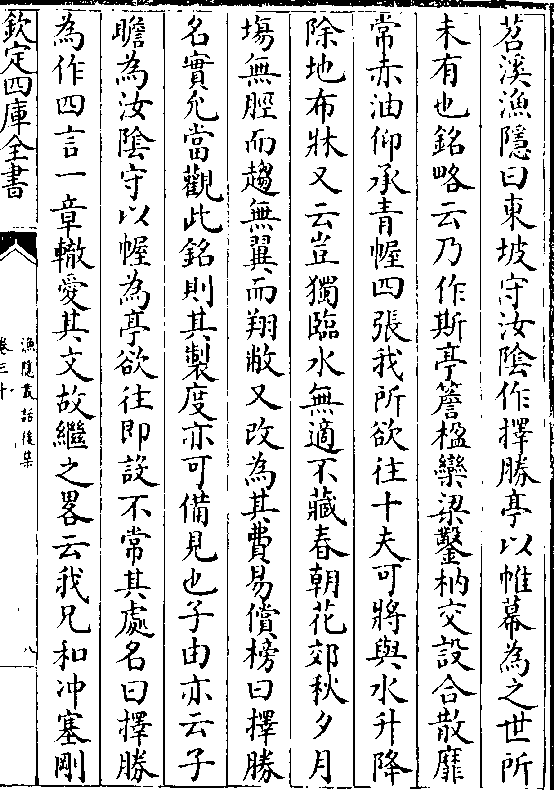 苕溪漁隱曰東坡守汝陰作擇勝亭以帷幕為之世所
未有也銘略云乃作斯亭簷楹欒梁鑿枘交設合散靡
常赤油仰承青幄四張我所欲往十夫可將與水升降
除地布牀又云豈獨臨水無適不藏春朝花郊秋夕月
塲無脛而趨無翼而翔敝又改為其費易償榜曰擇勝
名實允當觀此銘則其製度亦可備見也子由亦云子
瞻為汝陰守以幄為亭欲往即設不常其處名曰擇勝
為作四言一章轍愛其文故繼之畧云我兄和沖塞剛
欽定四庫全書
漁隱叢話後集
卷三十
八